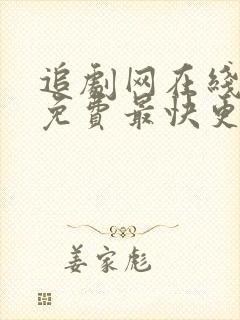 追劇网在綫
免費最快更
姜家彪